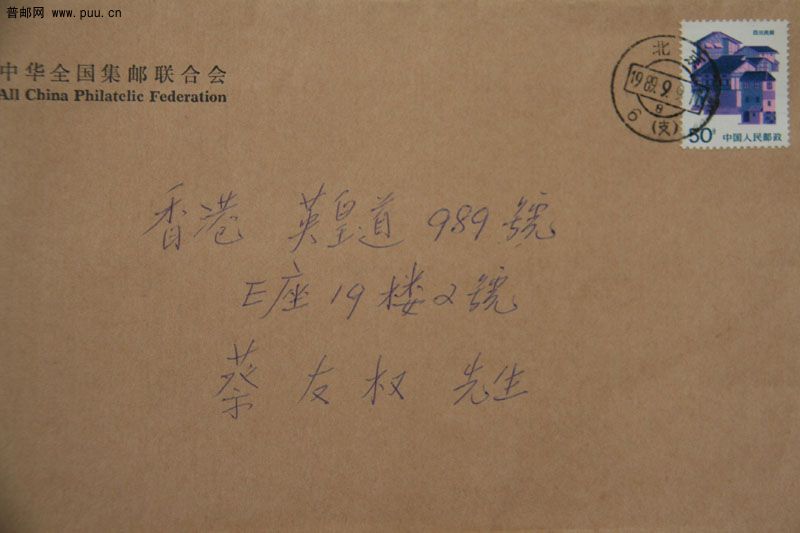 普邮网 www.puu.cn
中华全国集邮联合会
All China Philatelic Federation
北京
1989.9.9
8
6
(支)
50分 中国人民邮政
香港 英皇道 989號
E座 19楼2號
蔡友权 先生